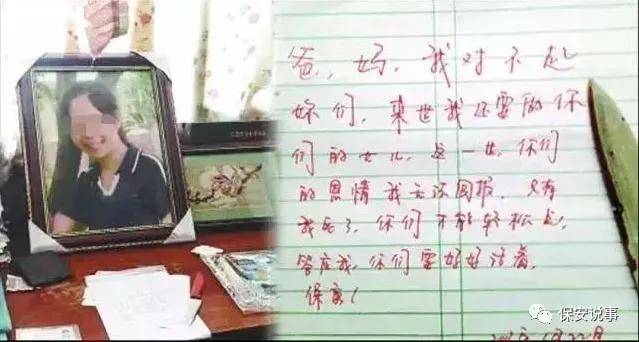 爸，妈，我对不起
你们，来世我还要做你
们的女儿，这一世，你们
的恩情我无法回报，只有
我死了，你们才能轻松些，
答应我，你们要好好活着，
保重！
保安说事